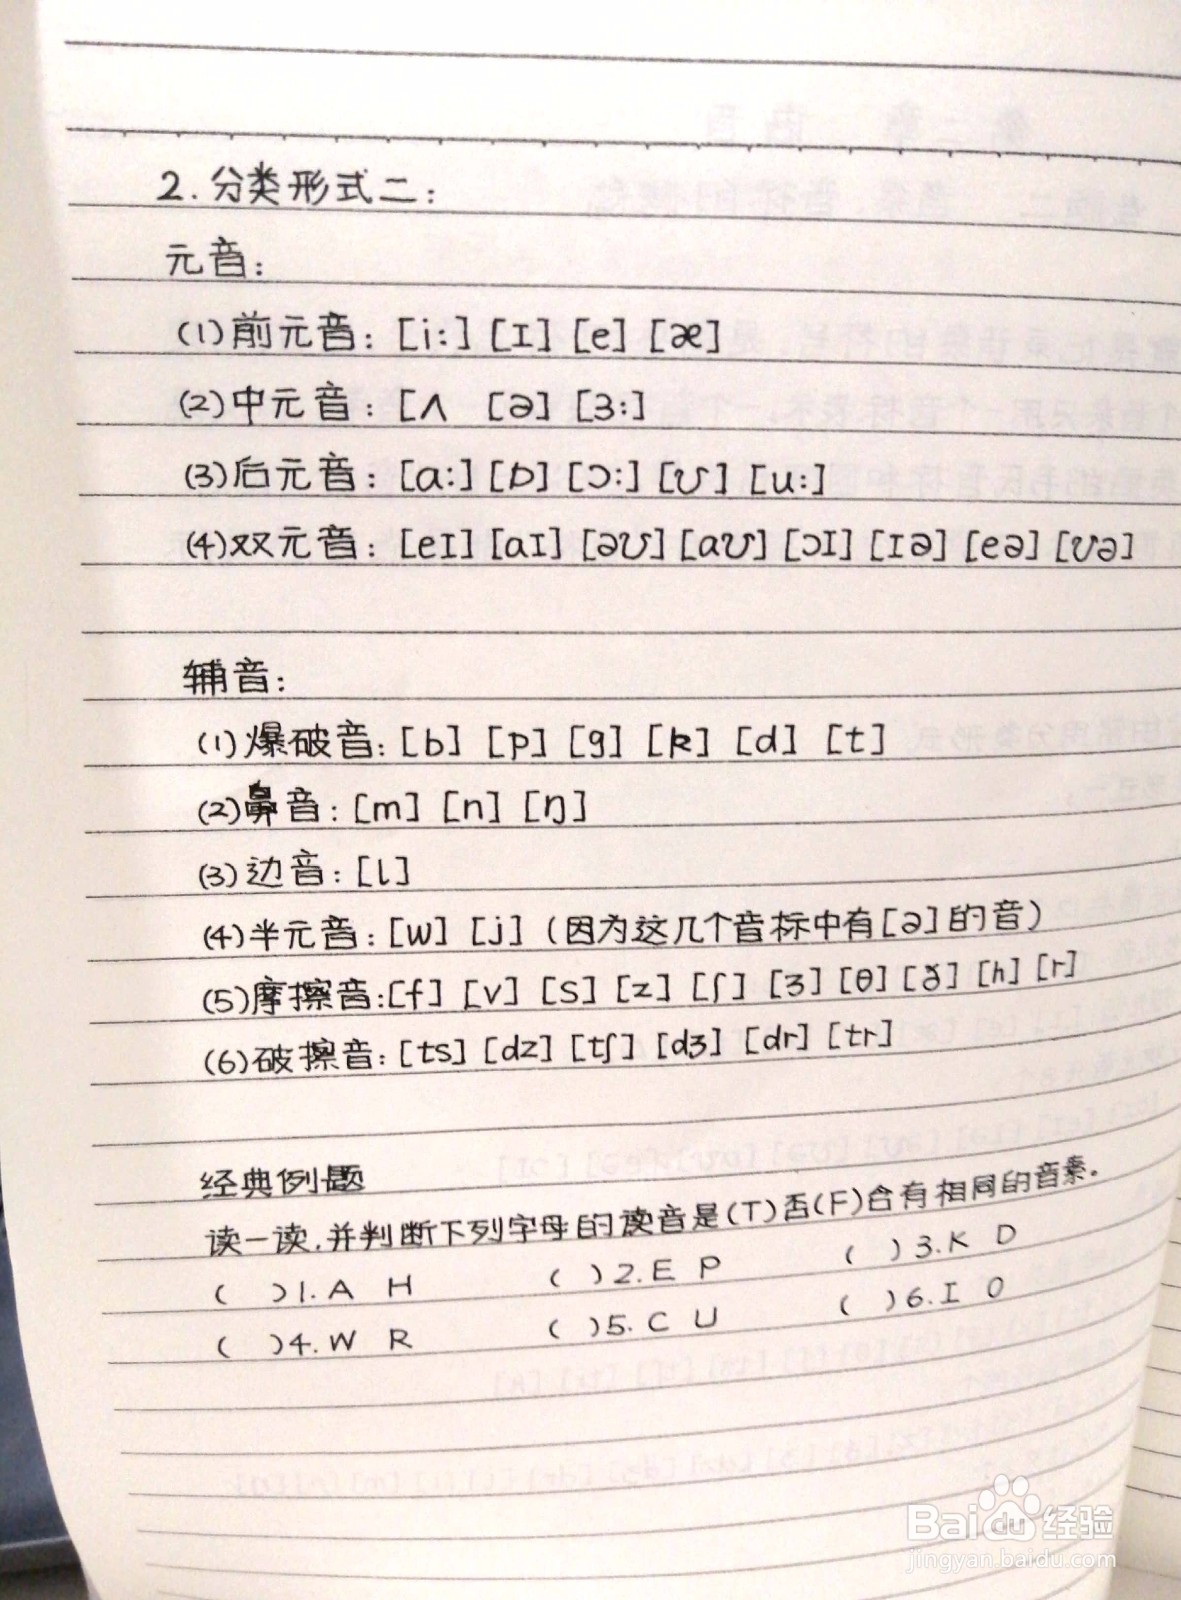 2.分类形式二:
元音:
(1)前元音:[i:] [ɪ] [e] [æ]
(2)中元音:[ʌ [ə] [ɜ:]
(3)后元音:[ɑ:] [ɒ] [ɔ:] [ʊ] [u:]
(4)双元音:[eɪ] [aɪ] [əʊ] [aʊ] [ɔɪ] [ɪə] [eə] [ʊə]
辅音:
(1)爆破音:[b] [p] [g] [k] [d] [t]
(2)鼻音:[m] [n] [ŋ]
(3)边音:[l]
(4)半元音:[w] [j] (因为这几个音标中有[ə]的音)
(5)摩擦音:[f] [v] [s] [z] [ʃ] [ʒ] [θ] [ð] [h] [r]
(6)破擦音:[ts] [dz] [tʃ] [dʒ] [dr] [tr]
经典例题
读一读,并判断下列字母的读音是(T)否(F)含有相同的音素。
( )1.A H ( )2.E P ( )3.K D
( )4.W R ( )5.C U ( )6.I O
Baidu经验
jingyan.baidu.com